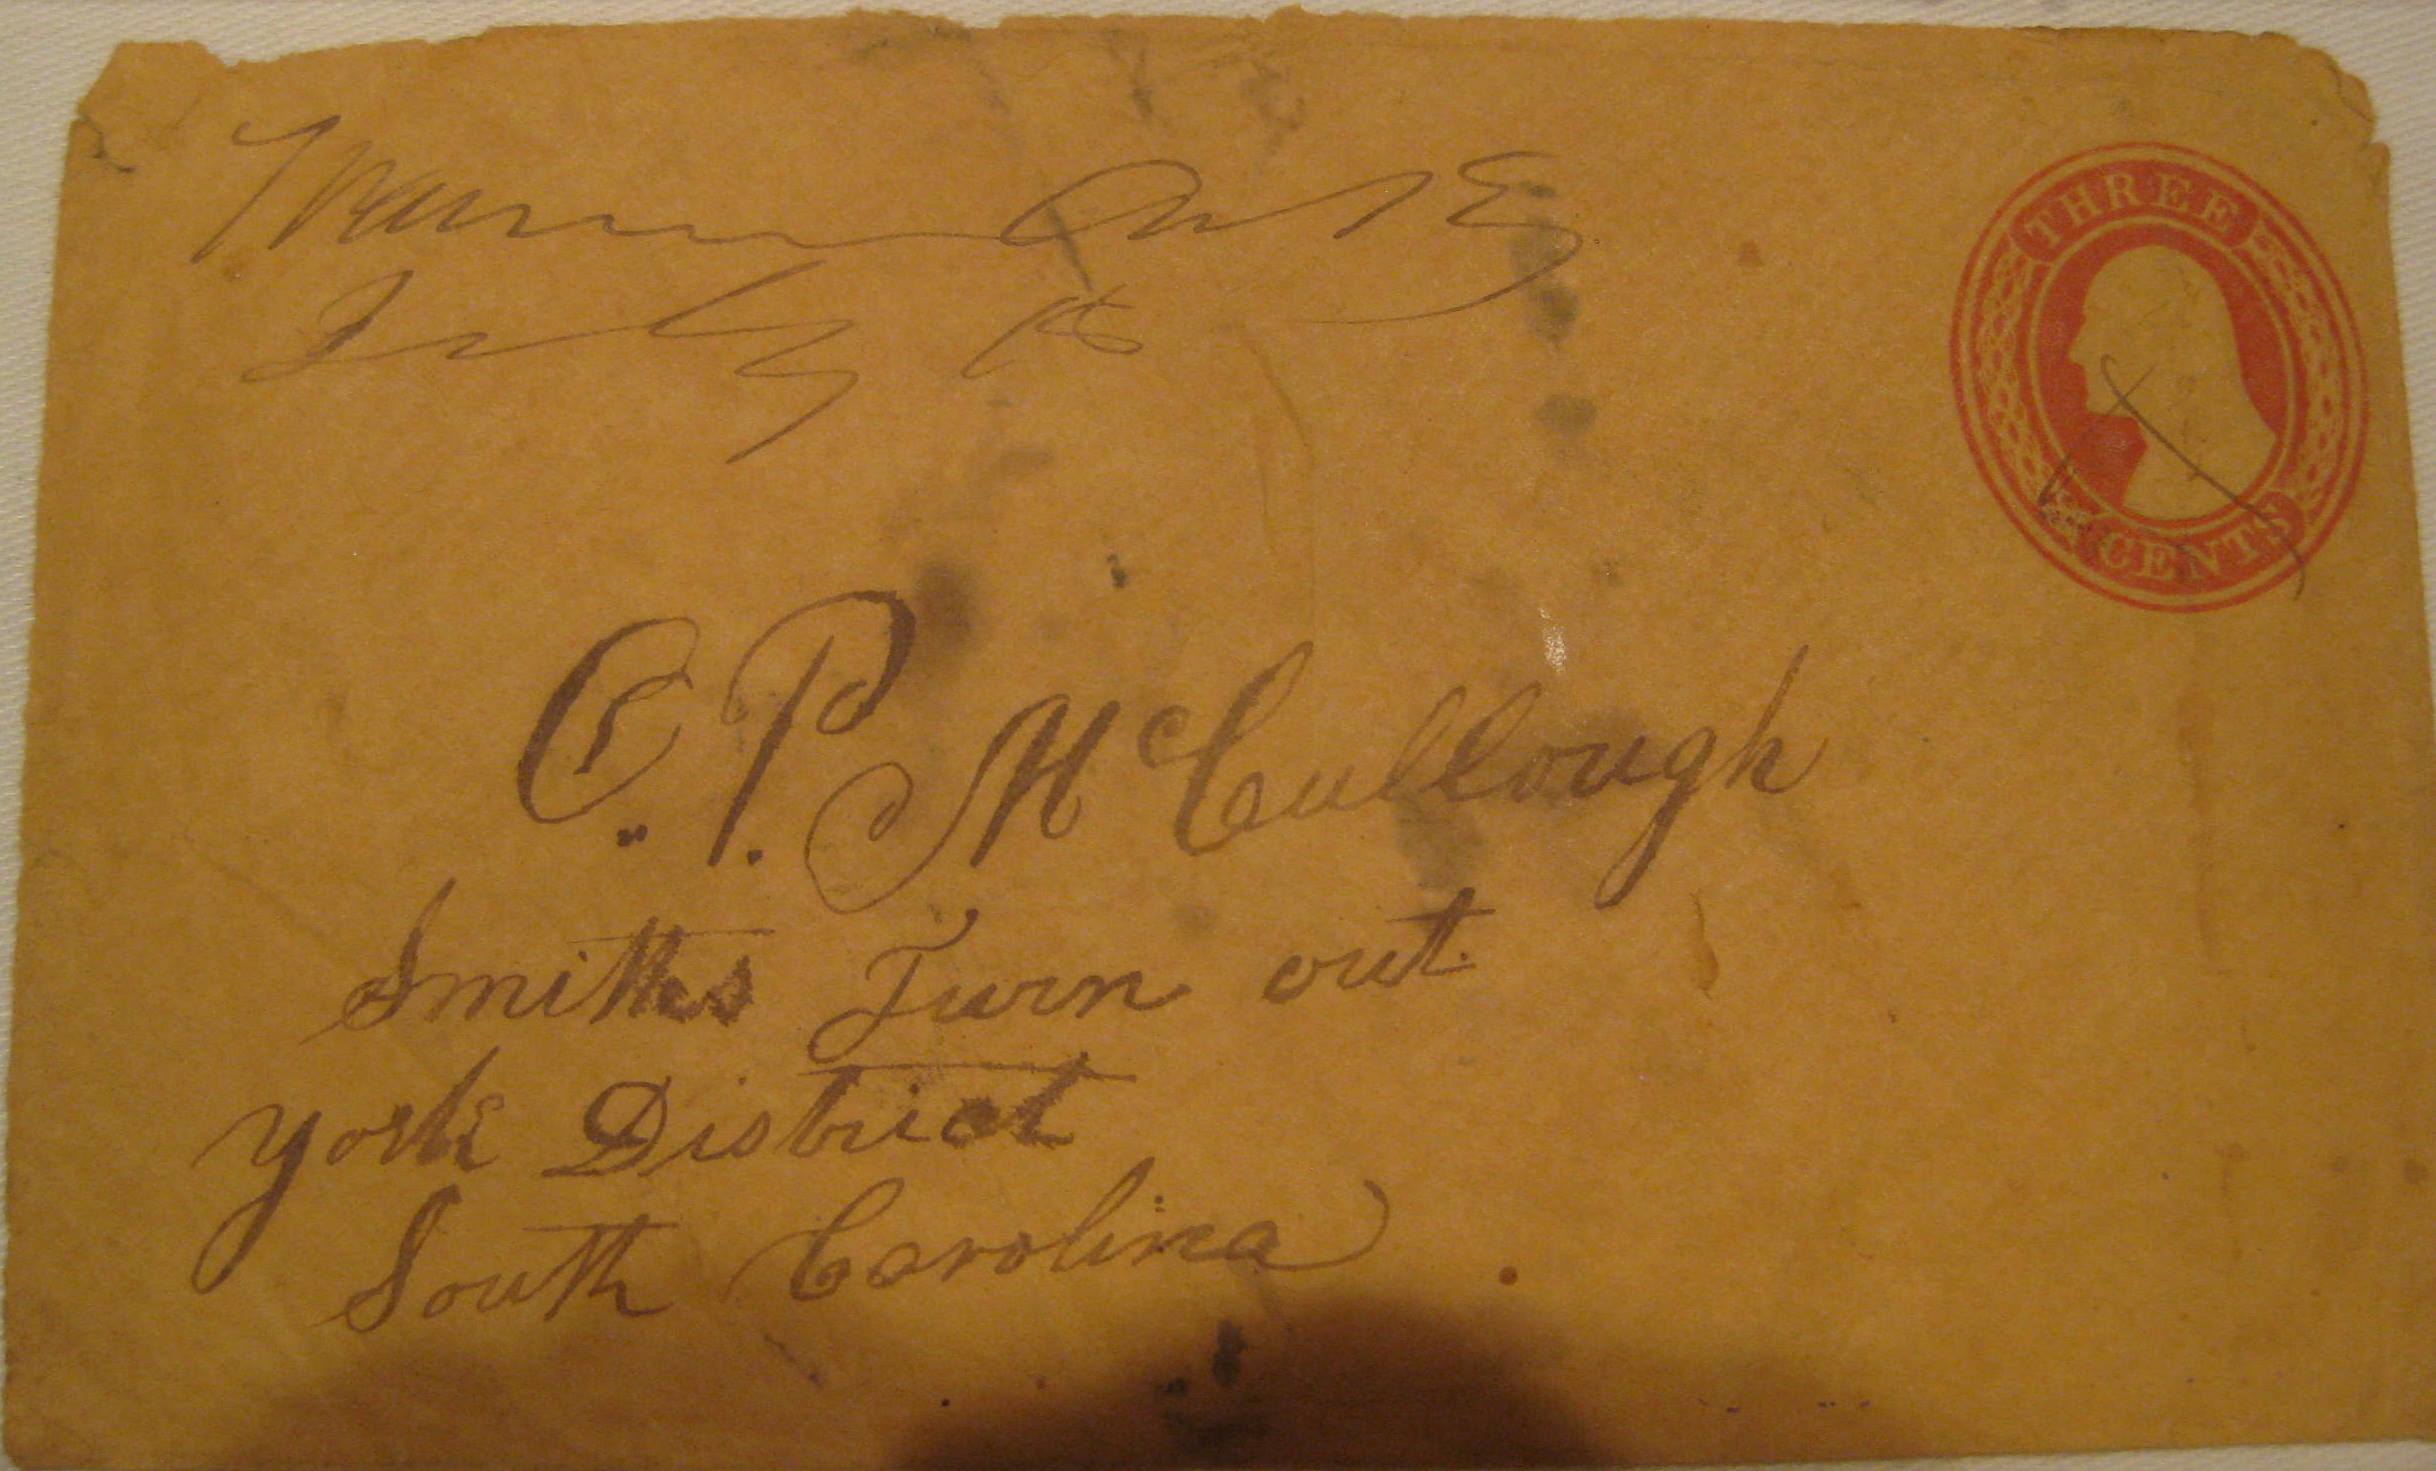 July 16
THREE
CENTS
C. P. McCullough
Smiths Turn out
York District
South Carolina